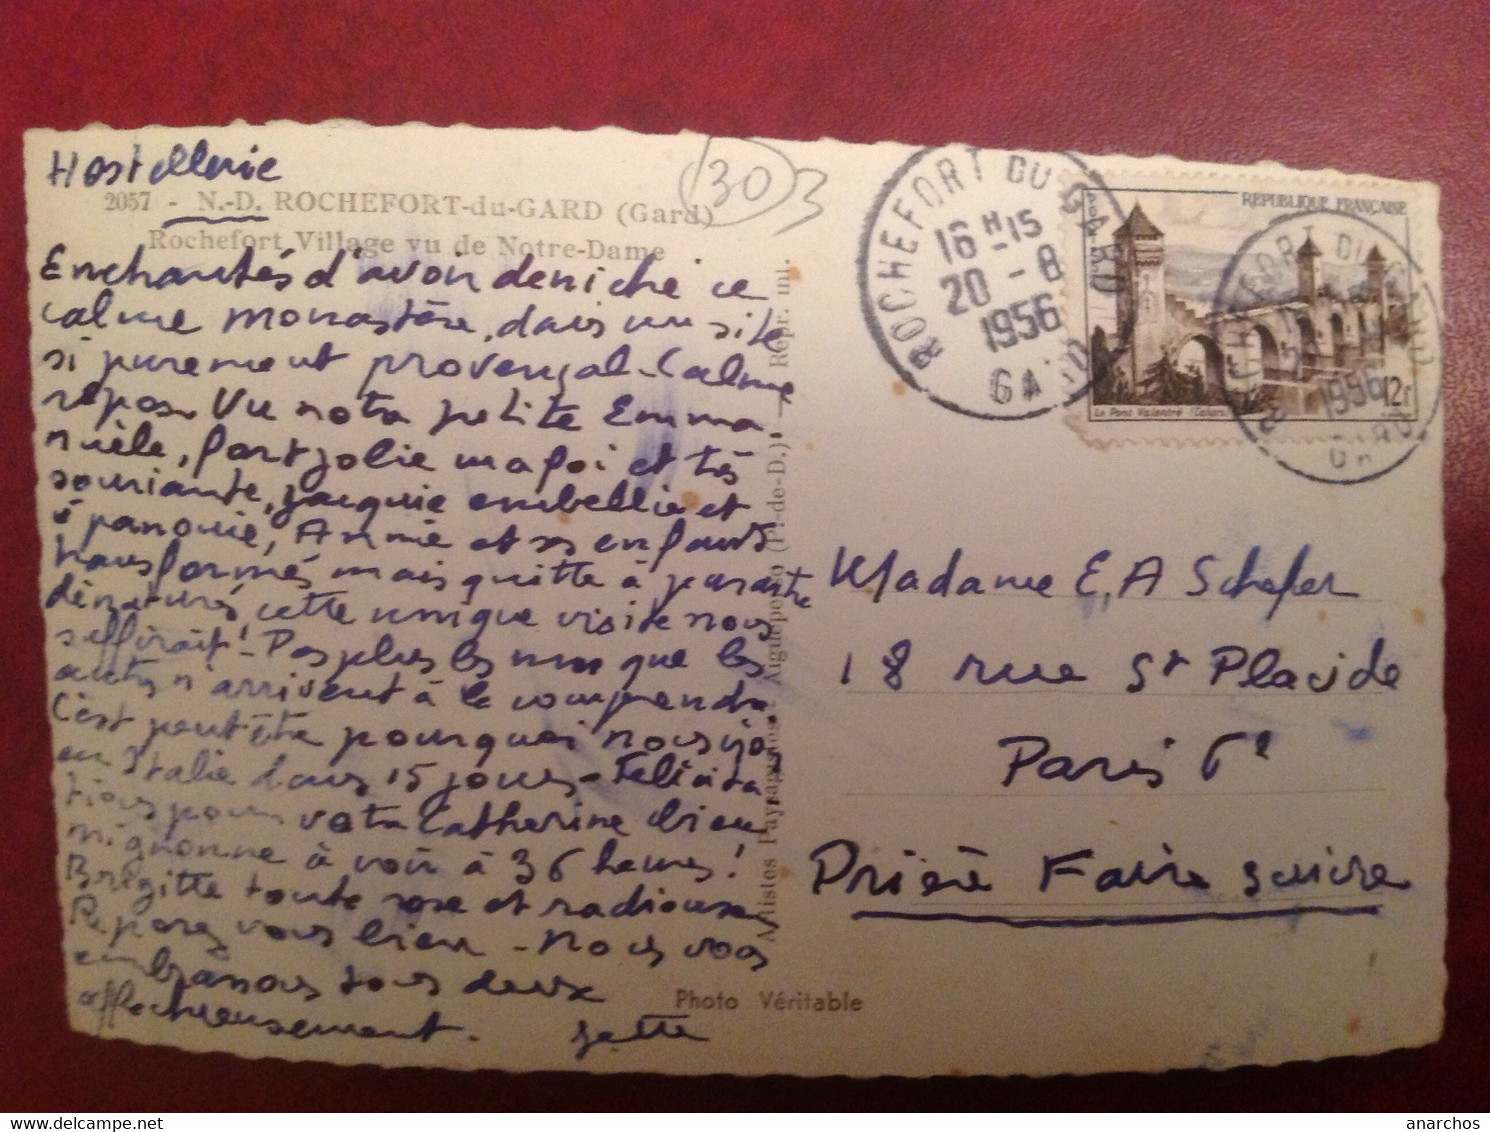 Hostellerie
303
2057 - N.-D. ROCHEFORT-du-GARD (Gard)
Rochefort Village vu de Notre-Dame
Enchantés d'avoir deniché ce
calme monastère, dans un site
si purement provençal - Calme
repos. Vu notre petite Emma
nuèle, fort jolie ma foi et très
souriante, Jacquie embellie et
épanouie, Annie et ses enfants
transformés mais quitte à paraitre
dénaturés, cette unique visite nous
suffirait! Pas plus les uns que les
autres n'arrivent à le comprendre
C'est peut être pourquoi nous
en Italie dans 15 jours - Félicita
tions pour votre Catherine bien
mignonne à voir à 36 heures!
Brigitte toute rose et radieuse
Reposez vous bien - Nous vous
embrassons tous deux
affectueusement. Jette
Photo Véritable
Artistes Paysagistes - Aigueperse (P.-de-D.) - Repr. int.
ROCHEFORT DU GARD
16 H-15
20 - 8
1956
GARD
REPUBLIQUE FRANÇAISE
Le Pont Valentré (Cahors)
12f
ROCHEFORT DU GARD
1956
GARD
Madame E. A Schefer
18 rue St Placide
Paris 6e
Prière Faire suivre
anarchos